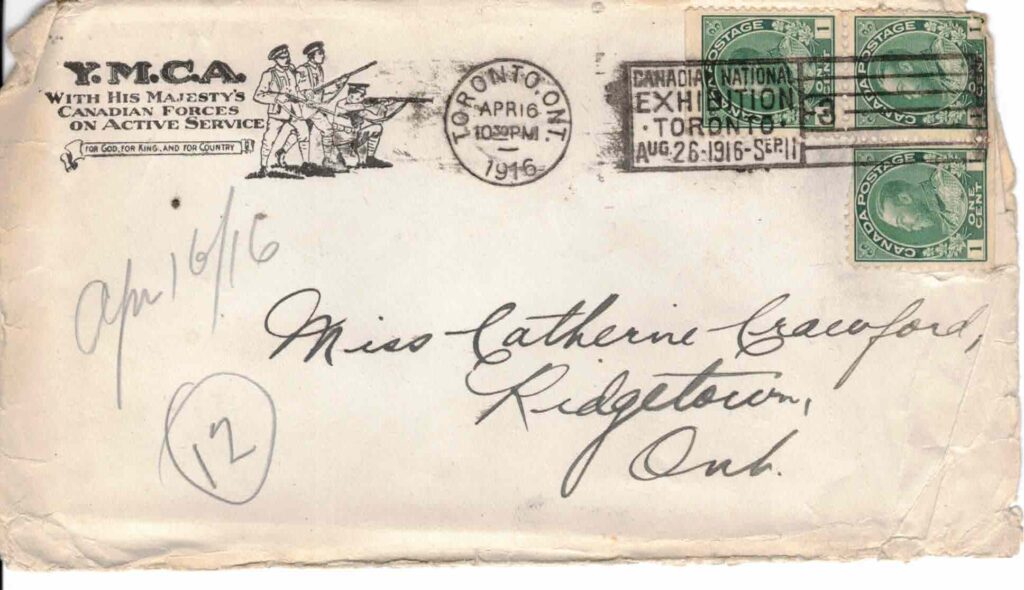 Y.M.C.A.
WITH HIS MAJESTY'S
CANADIAN FORCES
ON ACTIVE SERVICE
FOR GOD, FOR KING, AND FOR COUNTRY
TORONTO, ONT.
APR 16
10 30 PM
1916
CANADIAN NATIONAL
EXHIBITION
TORONTO
AUG. 26-1916-SEP. 11
3
CANADA POSTAGE
ONE CENT
1
CANADA POSTAGE
ONE CENT
1
CANADA POSTAGE
ONE CENT
1
Apr 16/16
Miss Catherine Crawford,
Ridgetown,
Ont.
12